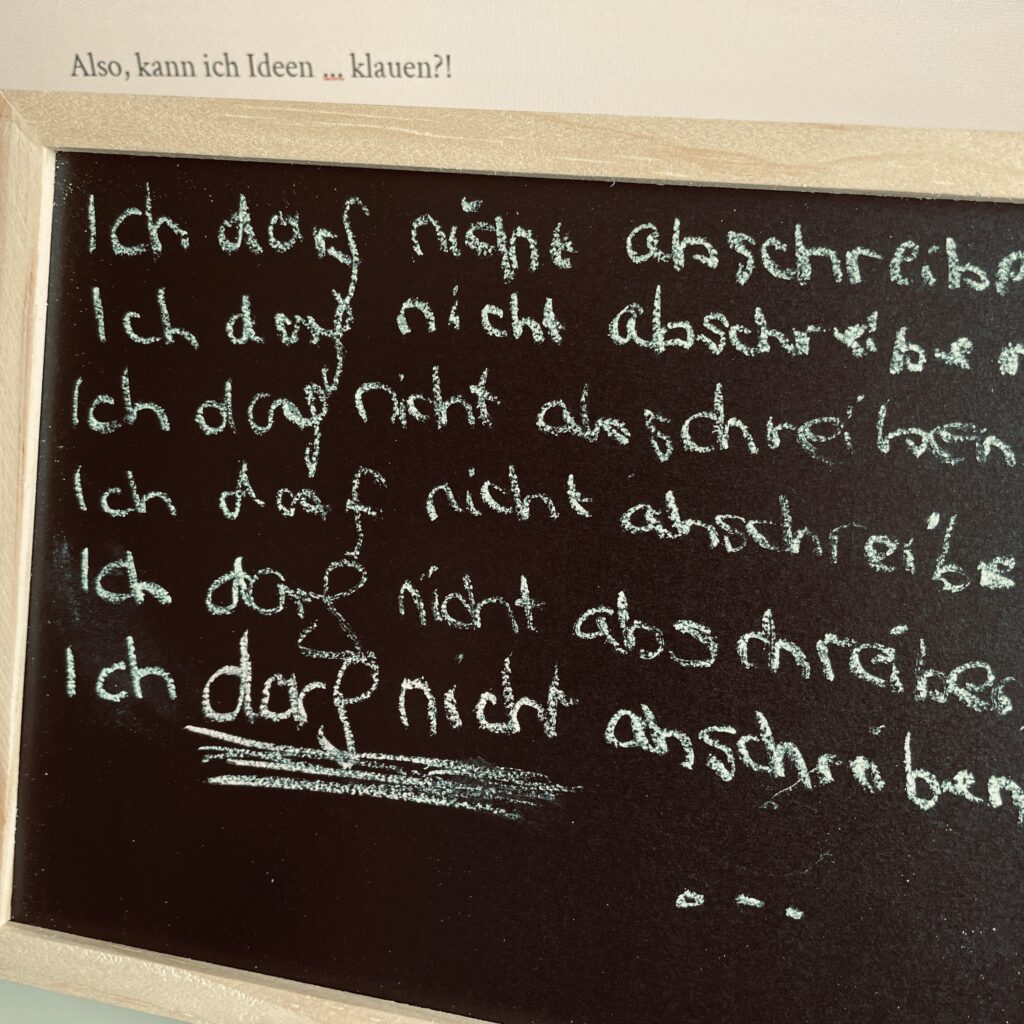 Also, kann ich Ideen ... klauen?!
Ich darf nicht abschreibe
Ich darf nicht abschreiben
Ich darf nicht abschreiben
Ich darf nicht abschreibe
Ich darf nicht abschreiben
Ich darf nicht abschreiben
...